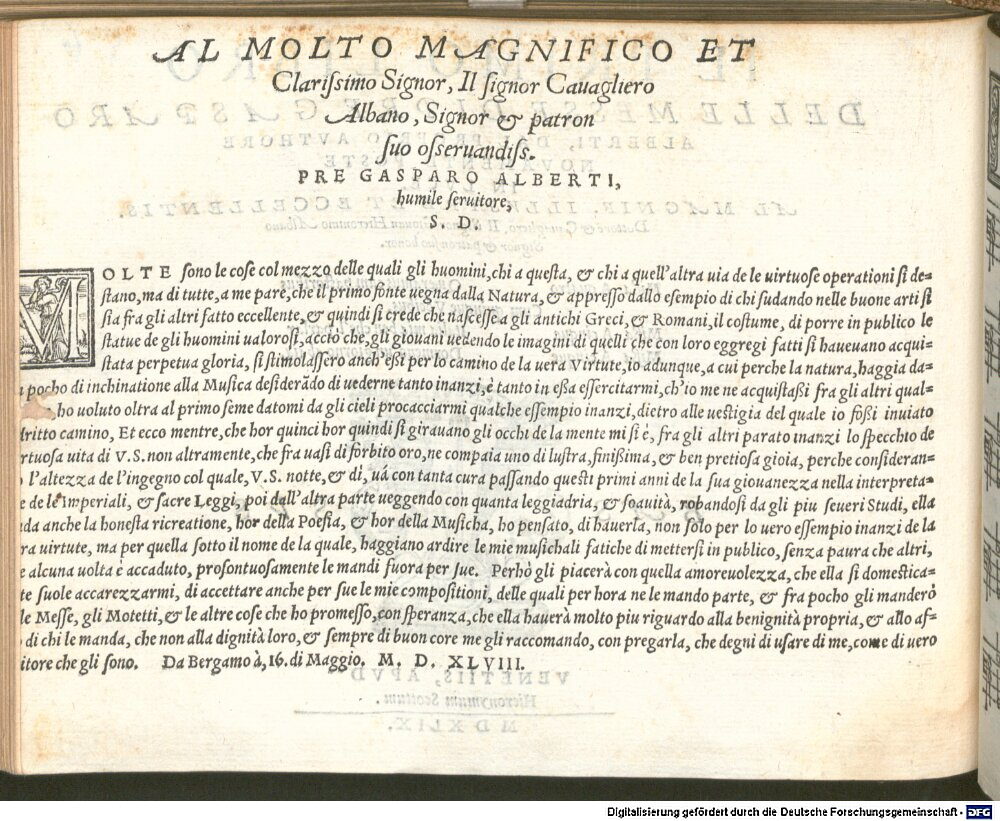 AL MOLTO MAGNIFICO ET
Clarissimo Signor, Il signor Cauagliero
Albano, Signor & patron
suo osseruandiss.
PRE GASPARO ALBERTI,
humile seruitore,
S. D.
MOLTE sono le cose col mezzo delle quali gli huomini, chi a questa, & chi a quell'altra uia de le uirtuose operationi si de-
stano, ma di tutte, a me pare, che il primo fonte uegna dalla Natura, & appresso dallo esempio di chi sudando nelle buone arti si
sia fra gli altri fatto eccellente, & quindi si crede che nascesse a gli antichi Greci, & Romani, il costume, di porre in publico le
statue de gli huomini ualorosi, acciò che, gli giouani uedendo le imagini di quelli che con loro eggregi fatti si haueuano acqui-
stata perpetua gloria, si stimolassero anch'essi per lo camino de la uera Virtute, io adunque, a cui perche la natura, haggia da-
pocho di inchinatione alla Musica desiderādo di uederne tanto inanzi, è tanto in essa essercitarmi, ch'io me ne acquistassi fra gli altri qual-
, ho uoluto oltra al primo seme datomi da gli cieli procacciarmi qualche essempio inanzi, dietro alle uestigia del quale io fossi inuiato
dritto camino, Et ecco mentre, che hor quinci hor quindi si girauano gli occhi de la mente mi si è, fra gli altri parato inanzi lo specchio de
rtuosa uita di V.S. non altramente, che fra uasi di forbito oro, ne compaia uno di lustra, finissima, & ben pretiosa gioia, perche consideran-
l'altezza de l'ingegno col quale, V.S. notte, & dì, uá con tanta cura passando questi primi anni de la sua giouanezza nella interpreta-
e de le Imperiali, & sacre Leggi, poi dall'altra parte ueggendo con quanta leggiadria, & soauità, robandosi da gli piu seueri Studi, ella
da anche la honesta ricreatione, hor della Poesia, & hor della Musicha, ho pensato, di hauerla, non solo per lo uero essempio inanzi de la
ra uirtute, ma per quella sotto il nome de la quale, haggiano ardire le mie musichali fatiche di mettersi in publico, senza paura che altri,
e alcuna uolta è accaduto, prosontuosamente le mandi fuora per sue. Perhò gli piacerà con quella amoreuolezza, che ella si domestica-
te suole accarezzarmi, di accettare anche per sue le mie compositioni, delle quali per hora ne le mando parte, & fra pocho gli manderò
le Messe, gli Motetti, & le altre cose che ho promesso, con speranza, che ella hauerà molto piu riguardo alla benignità propria, & allo af-
di chi le manda, che non alla dignità loro, & sempre di buon core me gli raccomando, con pregarla, che degni di usare di me, come di uero
itore che gli sono. Da Bergamo à, 16. di Maggio. M. D. XLVIII.
Digitalisierung gefördert durch die Deutsche Forschungsgemeinschaft - DFG